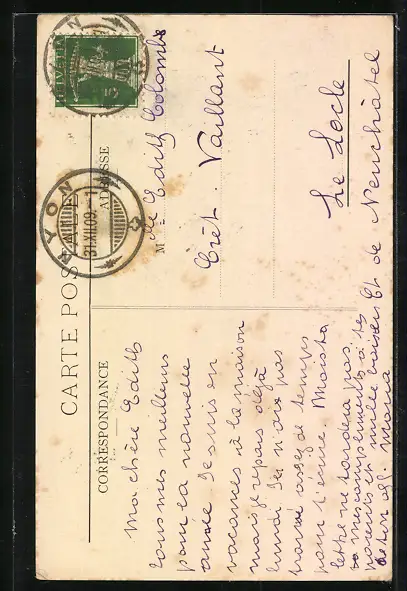 CARTE POSTALE
CORRESPONDANCE
ADRESSE
HELVETIA
5
NYON
NYON
31.XII.09.
Ma chère Edith
tous mes meilleurs
pour la nouvelle
année Je suis en
vacances à la maison
mais je repars déjà
lundi. Je n'ais pas
trouvé assez de temps
pour t'ecrire
lettre ne tardera pas
mes compliments à tes
parents et mille baisers
Maria
Mlle Edith Colomb
Crêt-Vaillant
Le Locle
Ct de Neuchâtel